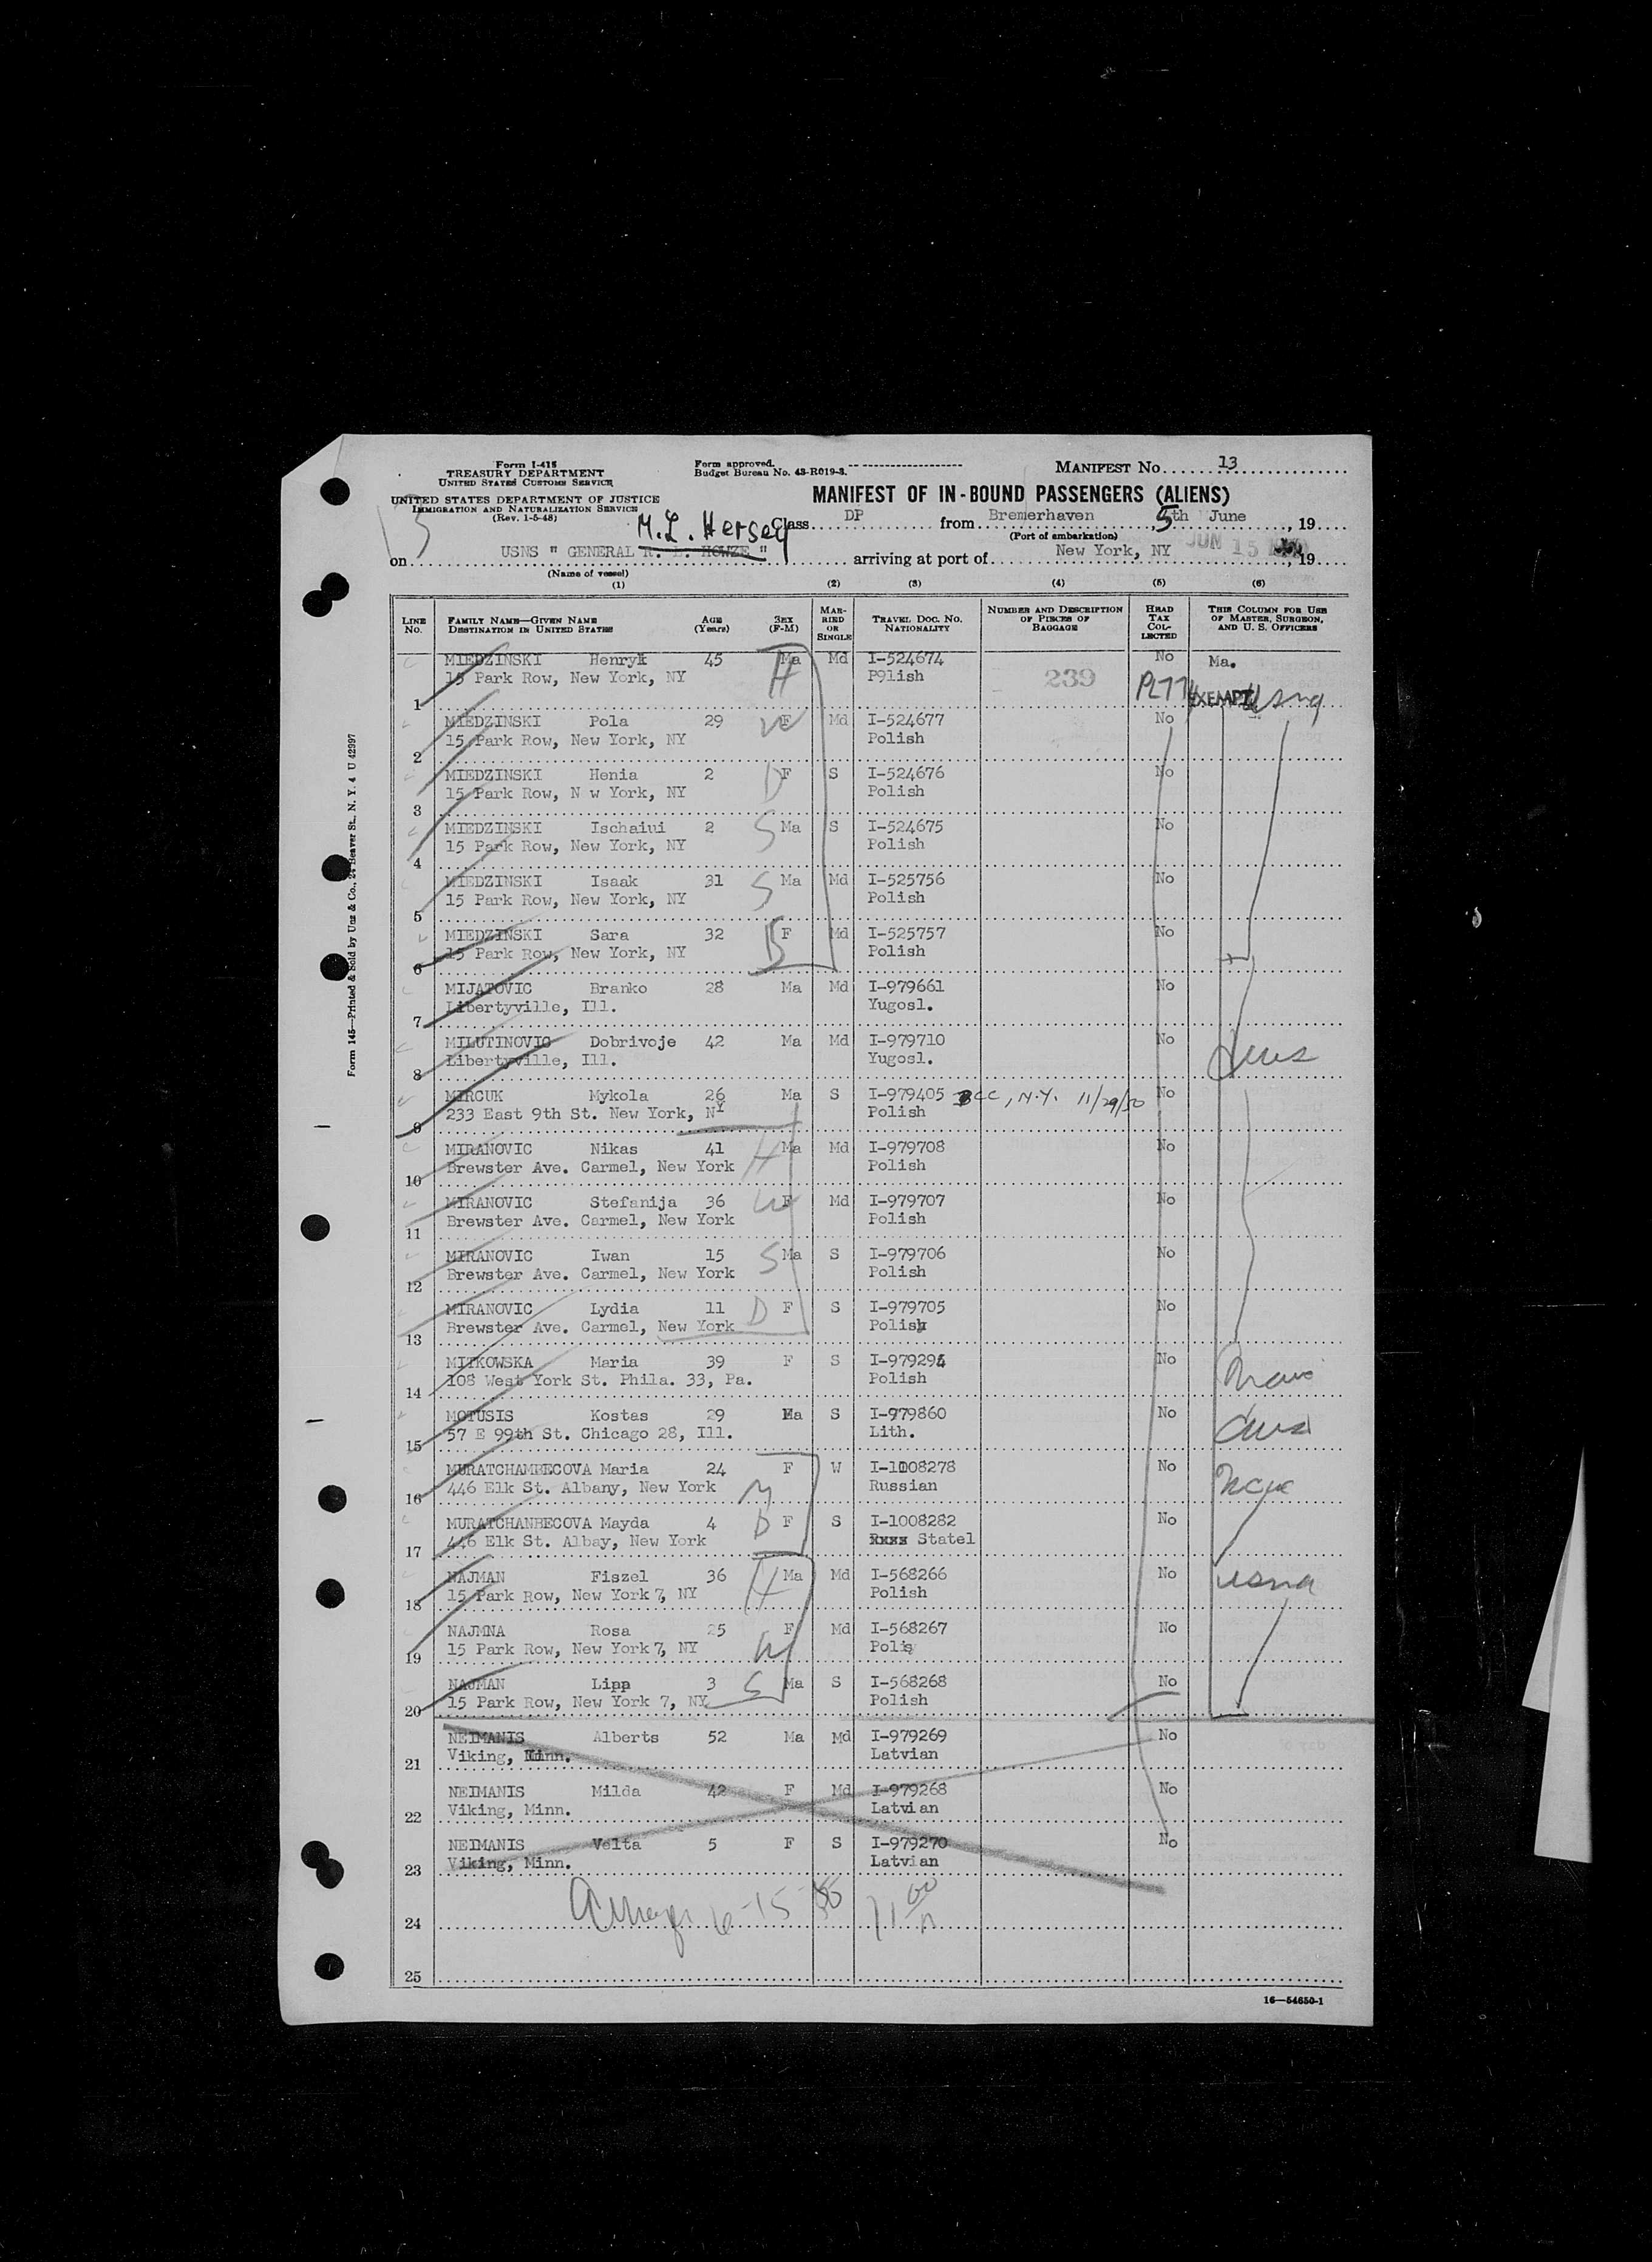 Form I-415
TREASURY DEPARTMENT
UNITED STATES CUSTOMS SERVICE
UNITED STATES DEPARTMENT OF JUSTICE
IMMIGRATION AND NATURALIZATION SERVICE
(Rev. 1-5-48)
Form approved.
Budget Bureau No. 43-R019-3.
MANIFEST No. 13
MANIFEST OF IN-BOUND PASSENGERS (ALIENS)
M.L. Hersey
Class DP from Bremerhaven 5th June, 19
(Port of embarkation)
on USNS " GENERAL R. L. HOWZE " arriving at port of New York, NY JUN 15, 19
(Name of vessel)
(1) (2) (3) (4) (5) (6)
LINE NO. FAMILY NAME—GIVEN NAME DESTINATION IN UNITED STATES AGE (Years) SEX (F-M) MARRIED OR SINGLE TRAVEL DOC. NO. NATIONALITY NUMBER AND DESCRIPTION OF PIECES OF BAGGAGE HEAD TAX COLLECTED THIS COLUMN FOR USE OF MASTER, SURGEON, AND U. S. OFFICERS
MIEDZINSKI Henryk 45 Ma Md I-524674 No Ma.
15 Park Row, New York, NY H P9lish 239
1 PL774 EXEMPT usna
MIEDZINSKI Pola 29 F W Md I-524677 No
15 Park Row, New York, NY Polish
2
MIEDZINSKI Henia 2 D F S I-524676 No
15 Park Row, N w York, NY Polish
3
MIEDZINSKI Ischaiui 2 S Ma S I-524675 No
15 Park Row, New York, NY Polish
4
MIEDZINSKI Isaak 31 S Ma Md I-525756 No
15 Park Row, New York, NY Polish
5
MIEDZINSKI Sara 32 F Md I-525757 No
15 Park Row, New York, NY Polish
6
MIJATOVIC Branko 28 Ma Md I-979661 No
Libertyville, Ill. Yugosl.
7
MILUTINOVIC Dobrivoje 42 Ma Md I-979710 No
Libertyville, Ill. Yugosl.
8
MIRCUK Mykola 26 Ma S I-979405 BCC, N.Y. 11/29/50 No
233 East 9th St. New York, NY Polish
9
MIRANOVIC Nikas 41 H Ma Md I-979708 No
Brewster Ave. Carmel, New York Polish
10
MIRANOVIC Stefanija 36 W F Md I-979707 No
Brewster Ave. Carmel, New York Polish
11
MIRANOVIC Iwan 15 S Ma S I-979706 No
Brewster Ave. Carmel, New York Polish
12
MIRANOVIC Lydia 11 D F S I-979705 No
Brewster Ave. Carmel, New York Polish
13
MITKOWSKA Maria 39 F S I-979294 No
108 West York St. Phila. 33, Pa. Polish
14
MOTUSIS Kostas 29 Ma S I-979860 No
57 E 99th St. Chicago 28, Ill. Lith.
15
MURATCHAMBECOVA Maria 24 F W I-1008278 No
446 Elk St. Albany, New York M Russian
16
MURATCHANBECOVA Mayda 4 D F S I-1008282 No
446 Elk St. Albay, New York Statel
17
NAJMAN Fiszel 36 H Ma Md I-568266 No usna
15 Park Row, New York 7, NY Polish
18
NAJMNA Rosa 25 F Md I-568267 No
15 Park Row, New York 7, NY W Polis
19
NAJMAN Lipp 3 S Ma S I-568268 No
15 Park Row, New York 7, NY Polish
20
NEIMANIS Alberts 52 Ma Md I-979269 No
Viking, Minn. Latvian
21
NEIMANIS Milda 42 F Md I-979268 No
Viking, Minn. Latvian
22
NEIMANIS Velta 5 F S I-979270 No
Viking, Minn. Latvian
23
6-15-50 11 00
24
25
16—54650-1
Form 145—Printed & Sold by Unz & Co., 24 Beaver St., N. Y. 4 U 42997